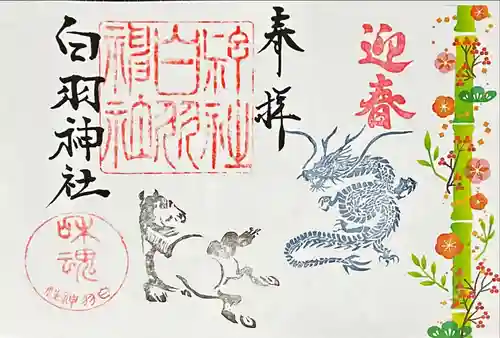 迎春
奉拝
白羽
白羽神社
魂
白羽神社